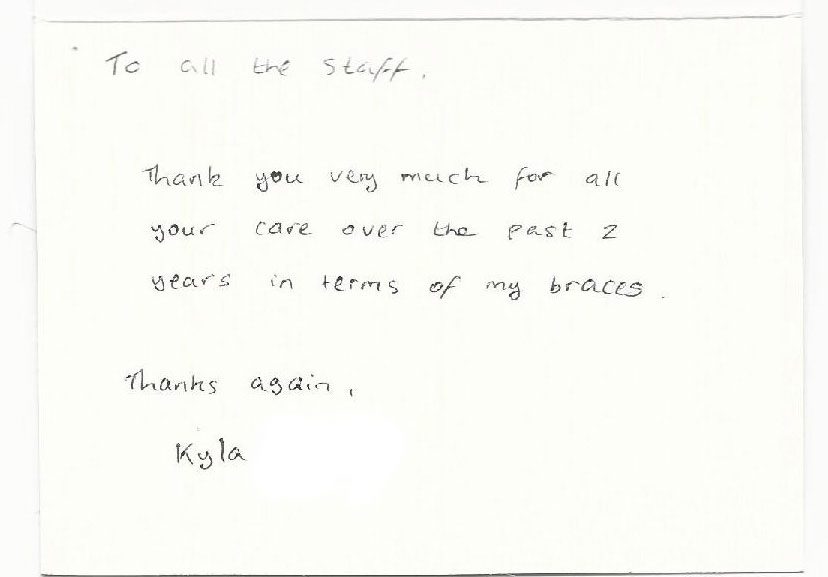 To all the staff,
Thank you very much for all
your care over the past 2
years in terms of my braces.
Thanks again,
Kyla